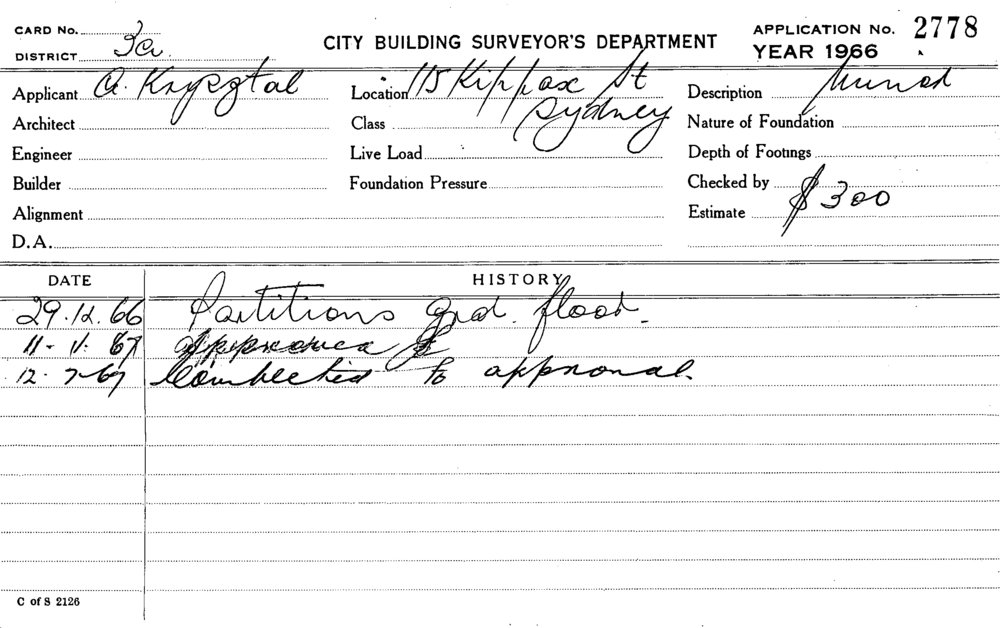 CARD No.
DISTRICT 3a
CITY BUILDING SURVEYOR'S DEPARTMENT
APPLICATION No. 2778
YEAR 1966
Applicant A. Krysztal
Location 115 Kippax St
Sydney
Description Minor
Architect
Class
Nature of Foundation
Engineer
Live Load
Depth of Footings
Builder
Foundation Pressure
Checked by
Alignment
Estimate $300
D.A.
DATE HISTORY
29.12.66 Partitions grd. floor.
11-1-67 approved
12-7-67 Completed to approval.
C of S 2126